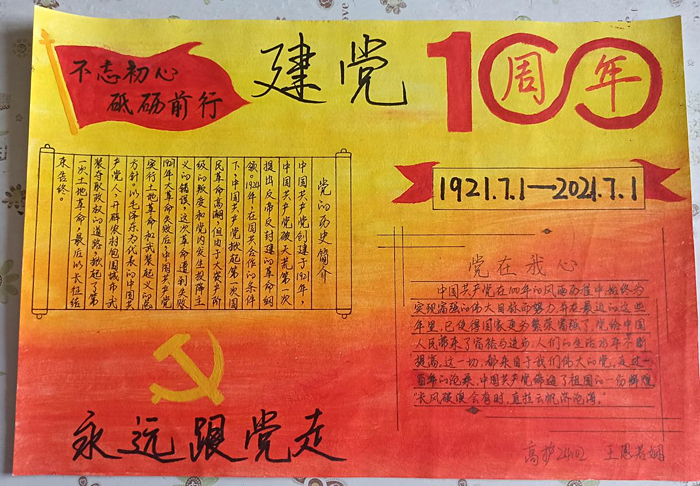 不忘初心
砥砺前行
建党100周年
1921.7.1—2021.7.1
党的历史简介
中国共产党创建于1921年,
中国共产党破天荒第一次
提出反帝反封建的革命纲
领,1924年,在国共合作的条件
下,中国共产党掀起第一次国
民革命高潮,但由于大资产阶
级的叛变和党内发生投降主
义的错误,这次革命遭到失败
1927年大革命失败后,中国共产党
实行土地革命和武装起义的总
方针。以毛泽东为代表的中国共
产党人,开辟农村包围城市武
装夺取政权的道路,掀起了第
一次土地革命,最后以长征结
束告终。
党在我心
中国共产党在100年的风雨历程中始终为
实现富强的伟大目标而努力,并在最近的这些
年里,已使得国家更为繁荣富强了,党给中国
人民带来了富裕与进步,人们的生活水平不断
提高,这一切,都来自于我们伟大的党,在这一
百年的沧桑,中国共产党缔造了祖国的一份辉煌
"长风破浪会有时,直挂云帆济沧海。"
永远跟党走
高护
王恩